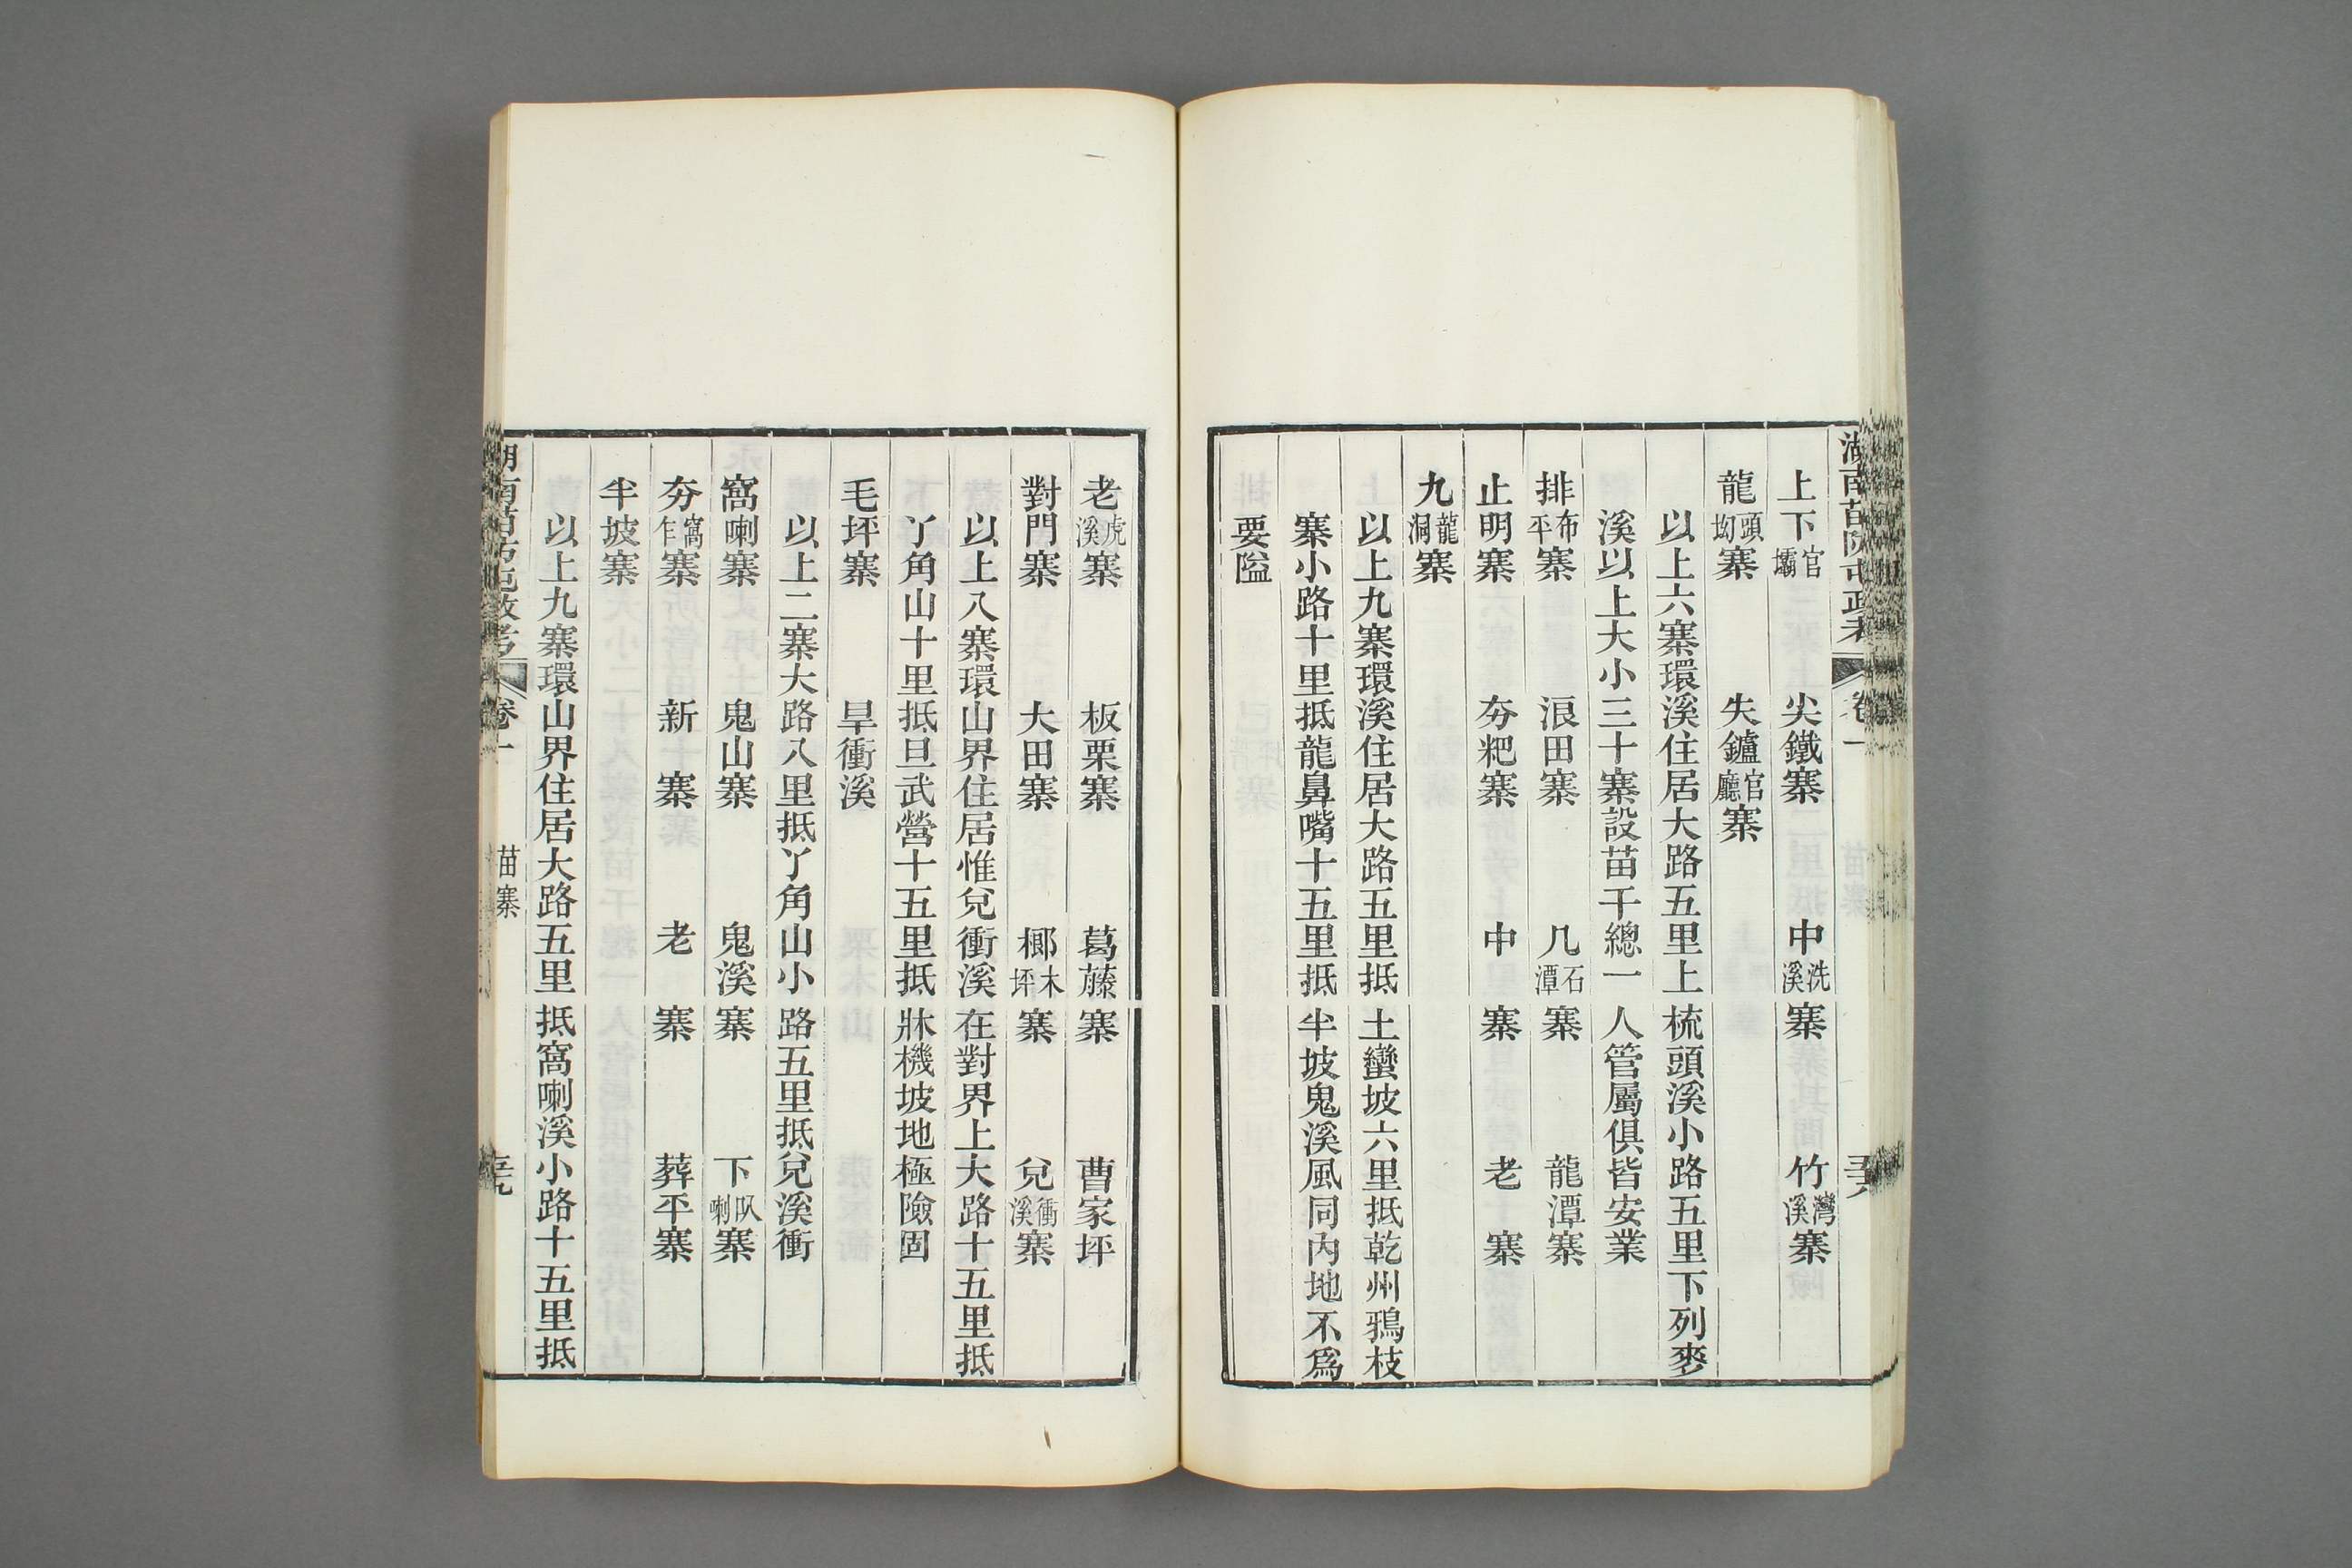 湖南苗防屯政考 卷一 苗寨 五十八
上下官壩 尖鐵寨 中洗溪寨 竹灣溪寨
龍頭坳寨 失鑪官廳寨
以上六寨環溪住居大路五里上梳頭溪小路五里下列麥
溪以上大小三十寨設苗千總一人管屬俱皆安業
排布平寨 浪田寨 几石潭寨 龍潭寨
止明寨 夯粑寨 中寨 老寨
九龍洞寨
以上九寨環溪住居大路五里抵土蠻坡六里抵乾州鴉枝
寨小路十里抵龍鼻嘴十五里抵半坡鬼溪風同內地不爲
要隘
老虎溪寨 板栗寨 葛藤寨 曹家坪
對門寨 大田寨 梛木坪寨 兌衝溪寨
以上八寨環山界住居惟兌衝溪在對界上大路十五里抵
丫角山十里抵旦武營十五里抵牀機坡地極險固
毛坪寨 旱衝溪
以上二寨大路八里抵丫角山小路五里抵兌溪衝
窩喇寨 鬼山寨 鬼溪寨 下臥喇寨
夯窩乍寨 新寨 老寨 葬平寨
半坡寨
以上九寨環山界住居大路五里抵窩喇溪小路十五里抵
湖南苗防屯政考 卷一 苗寨 五十九